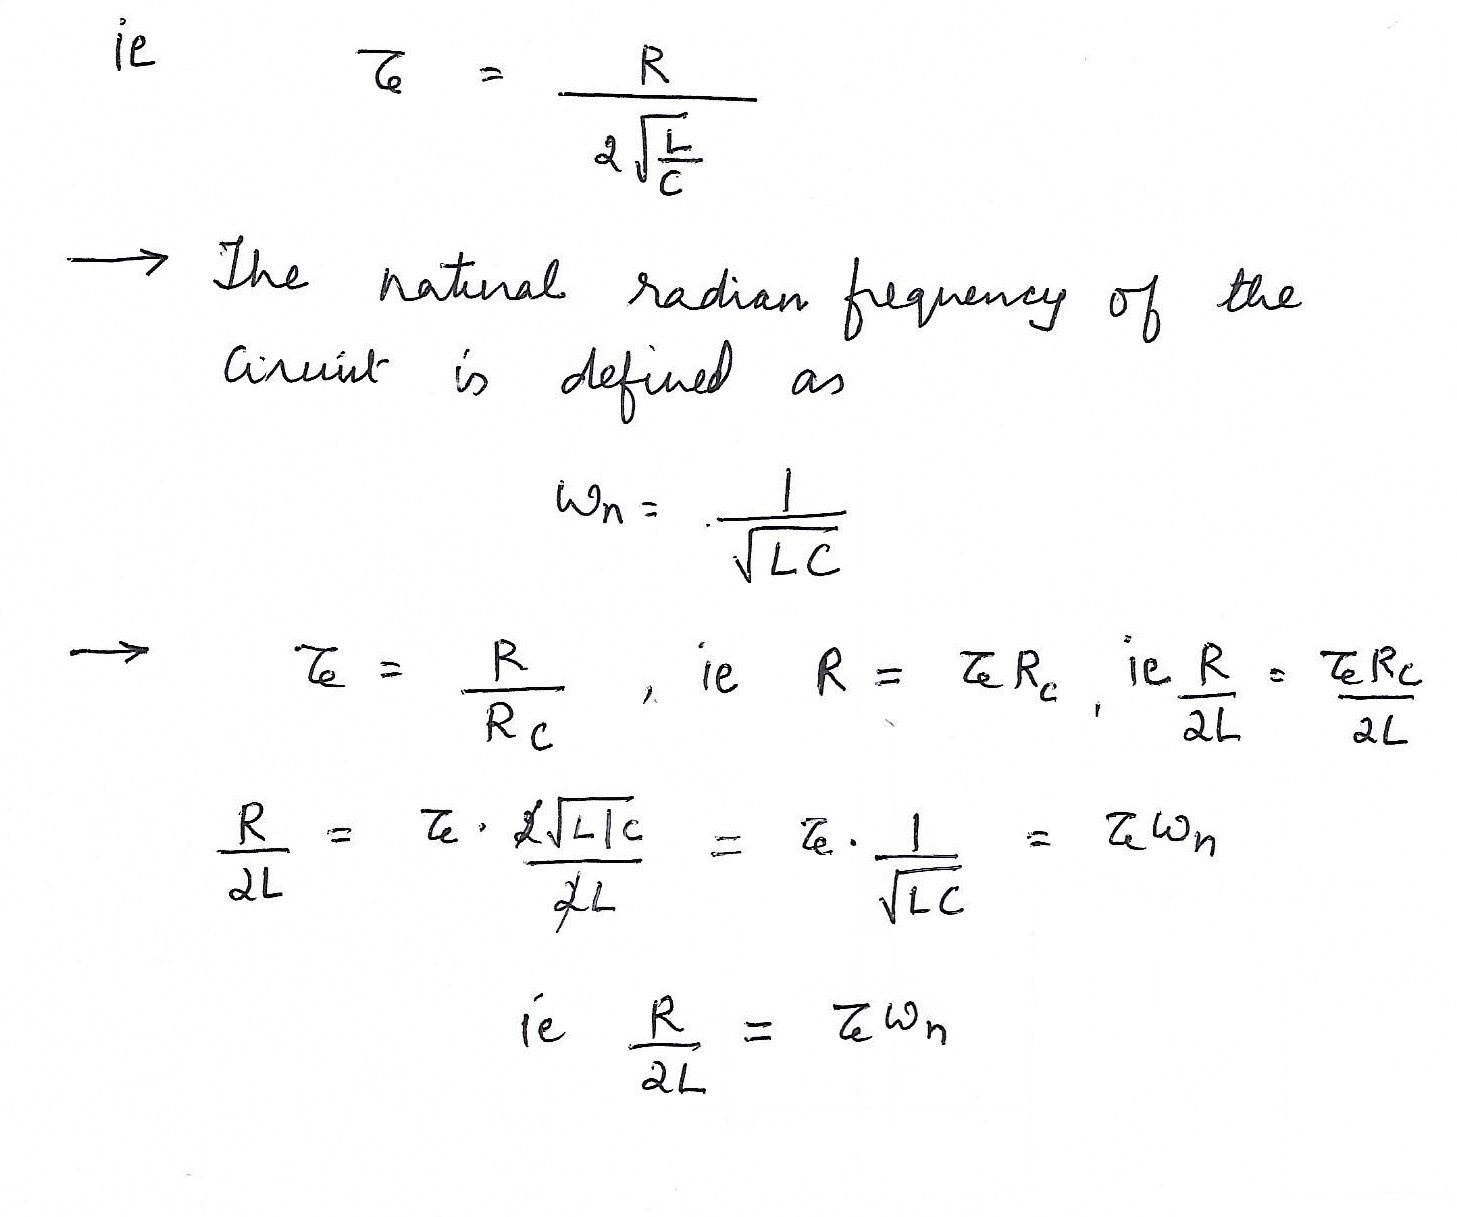 ie ζ = R / 2√(L/C)
→ The natural radian frequency of the
Circuit is defined as
ωn = 1 / √LC
→ ζ = R / RC , ie R = ζ RC , ie R / 2L = ζ RC / 2L
R / 2L = ζ · 2√L/C / 2L = ζ · 1 / √LC = ζ ωn
ie R / 2L = ζ ωn